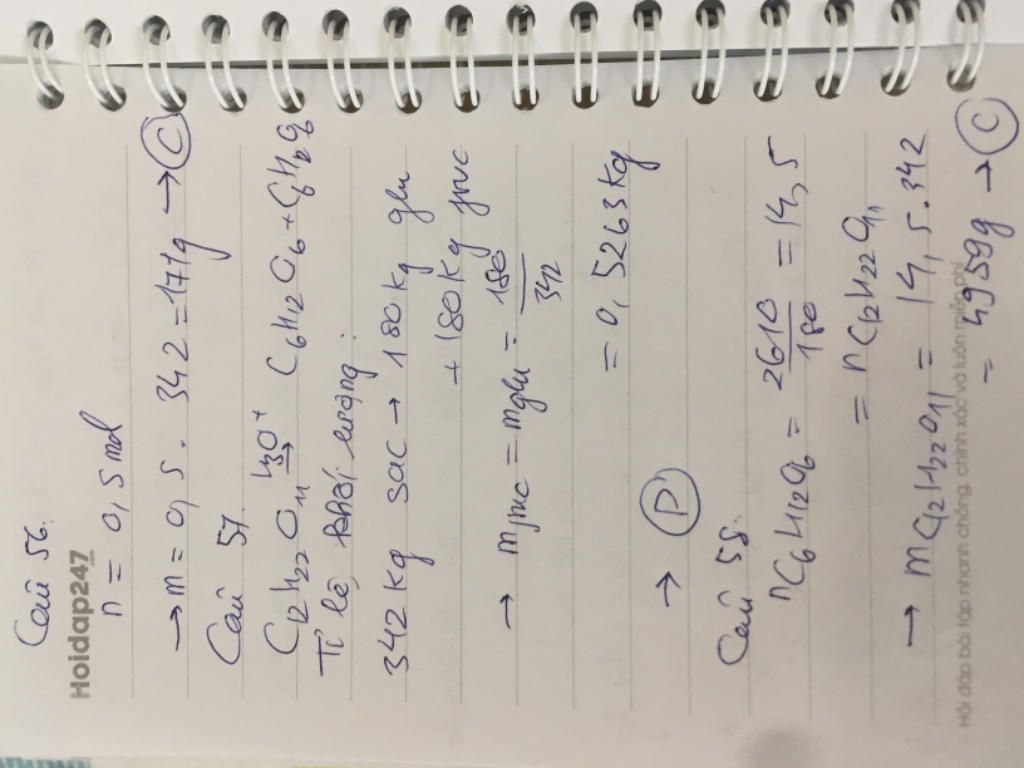 Câu 56.
Hoidap247
.com
n = 0,5 mol
→ m = 0,5 . 342 = 171g → C
Câu 57.
C12H22O11 H3O+ → C6H12O6 + C6H12O6
Tỉ lệ khối lượng:
342 kg sac → 180 kg glu
+ 180 kg fruc
→ mfruc = mglu = 180/342
= 0,5263 kg
→ D
Câu 58.
nC6H12O6 = 2610/180 = 14,5
= nC12H22O11
→ mC12H22O11 = 14,5.342
= 4959g → C
Hỏi đáp bài tập nhanh chóng, chính xác và luôn miễn phí